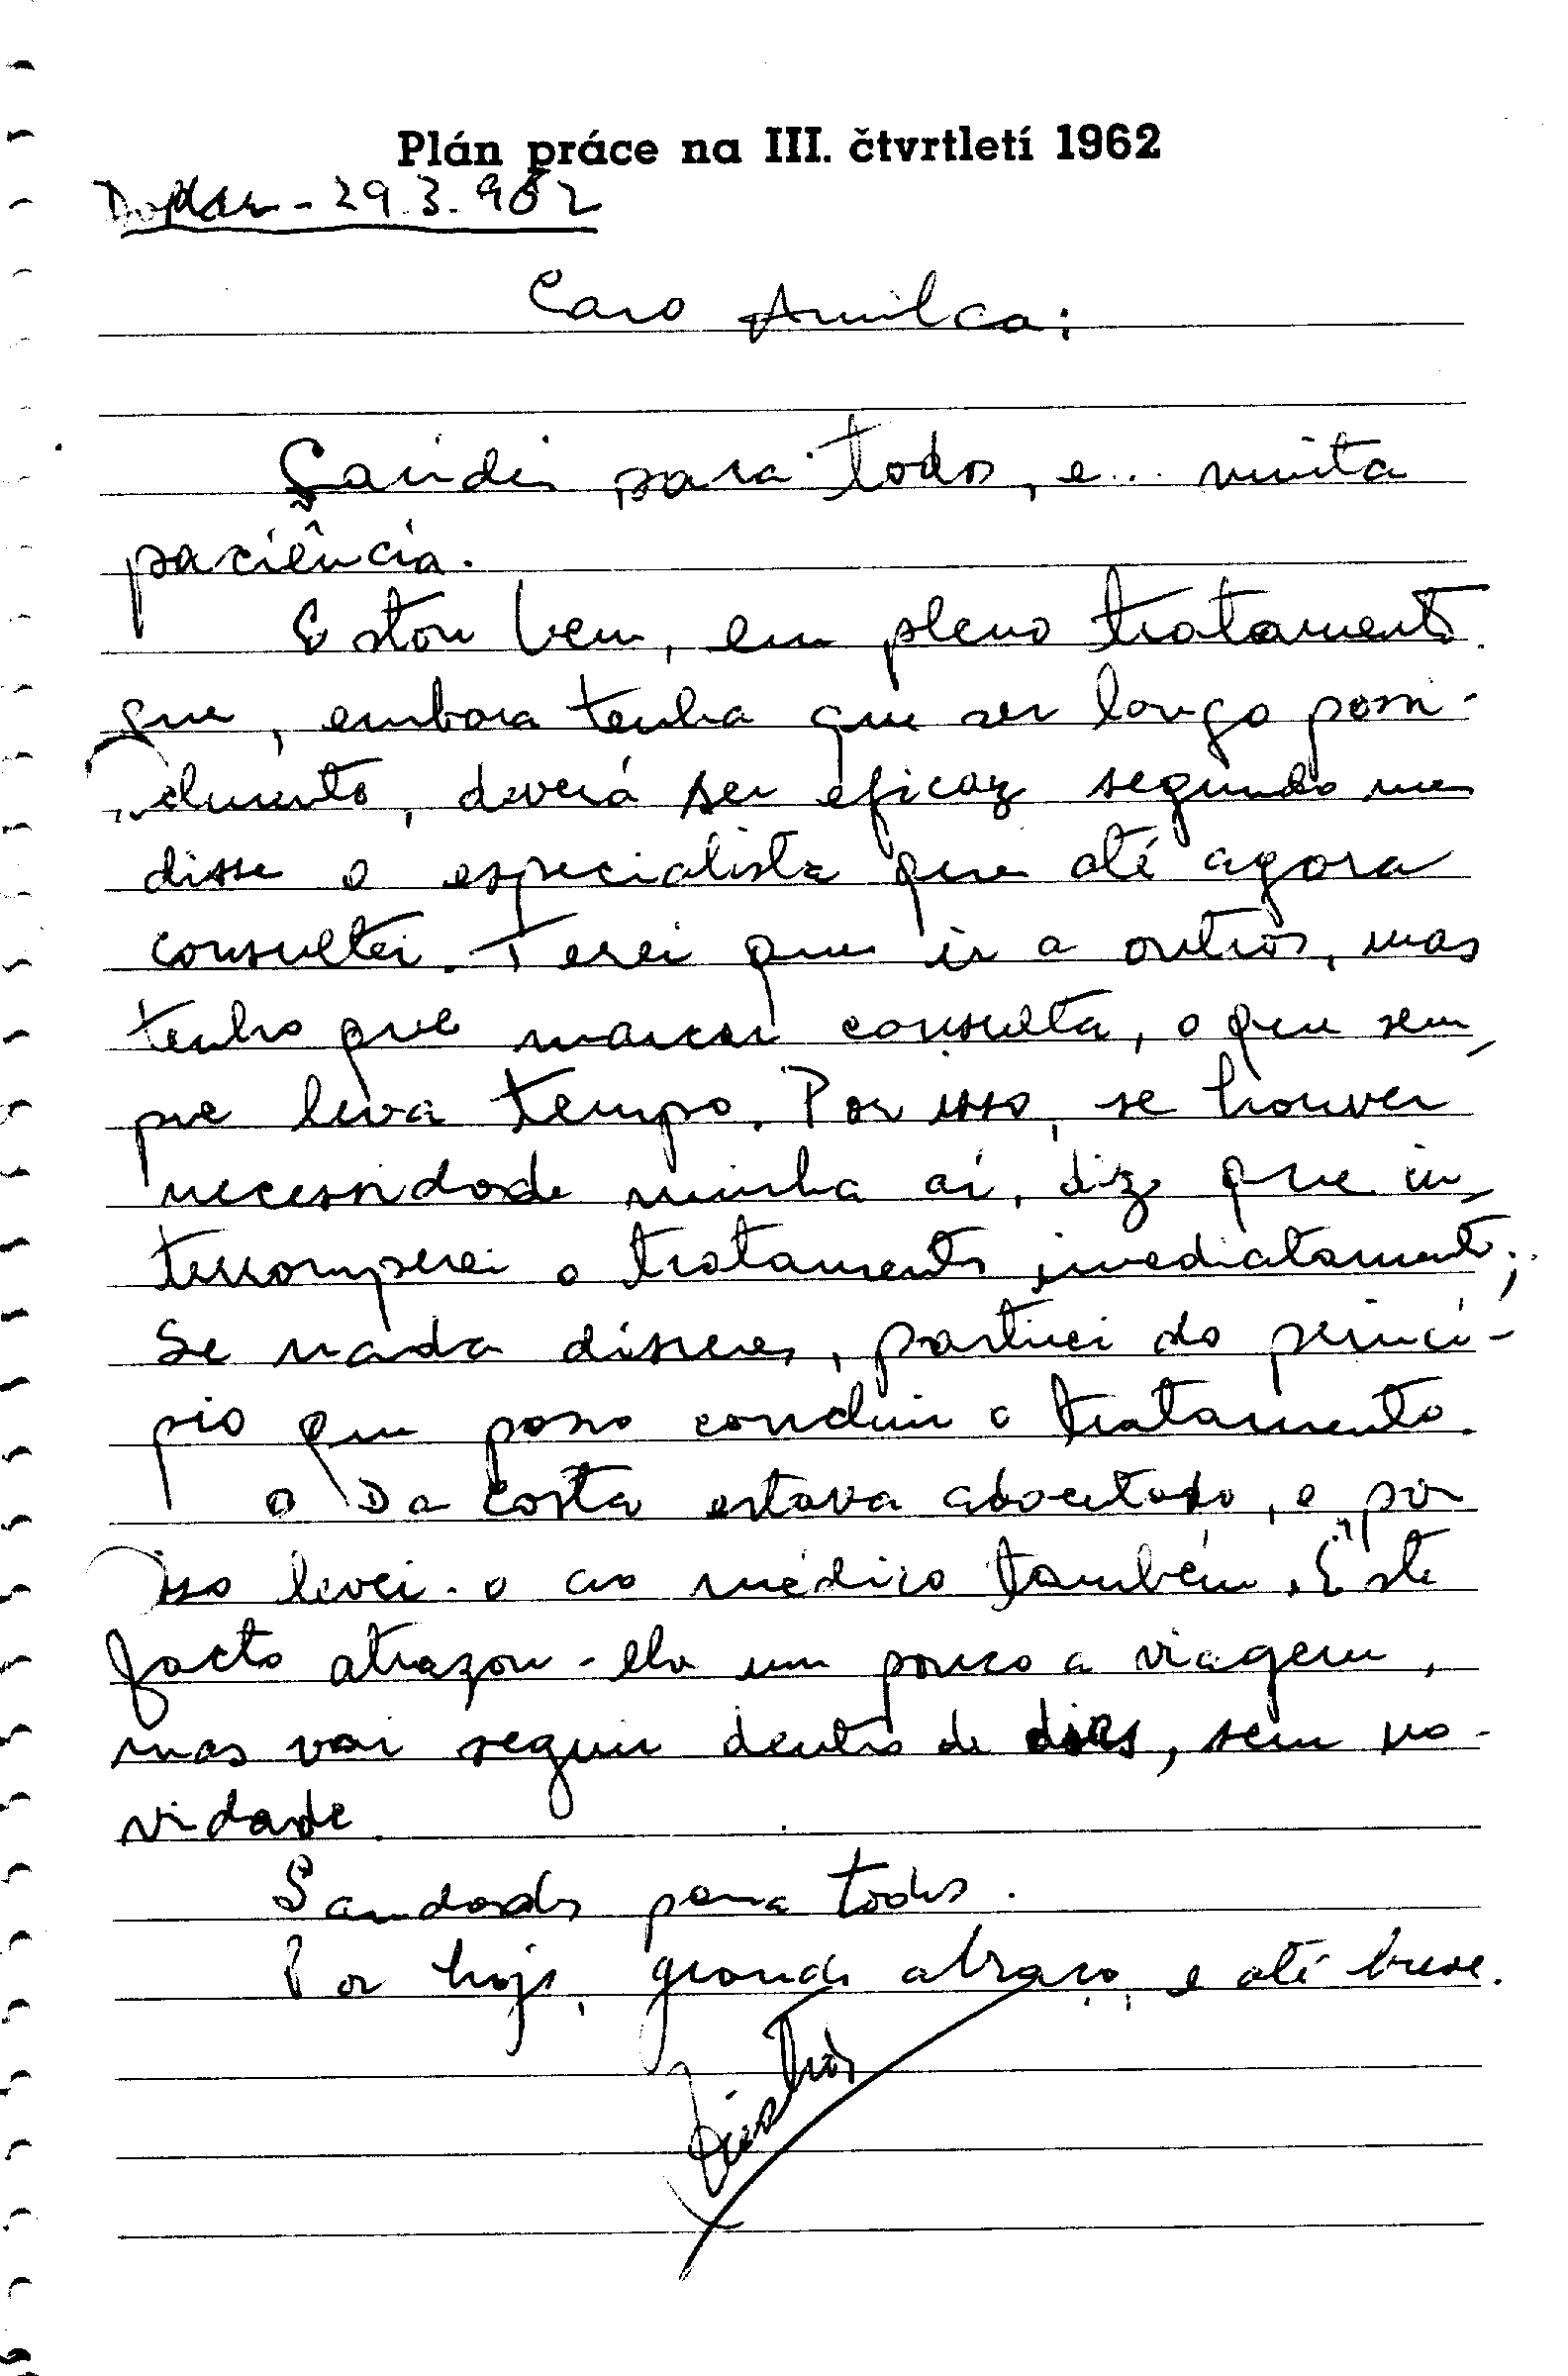 Plán práce na III. čtvrtletí 1962
29.3.962
Caro Amilca:
Saúde para todos, e... muita
paciência.
Estou bem, em pleno tratamento
que, embora tenha que ser longo possi-
, deverá ser eficaz segundo me
disse o especialista que até agora
consultei. Terei que ir a outros, mas
tenho que marcar consulta, o que sem-
pre leva tempo. Por isso, se houver
necessidade minha aí, diz que in-
terromperei o tratamento imediatamente;
Se nada disseres, partirei do princí-
pio que posso concluir o tratamento.
O Da Costa estava adoentado, e por
isso levei-o ao médico também. Este
facto atrazou-lhe um pouco a viagem,
mas vai seguir dentro de dias, sem no-
vidade.
Saudades para todos.
Por hoje, grande abraço, e até breve.